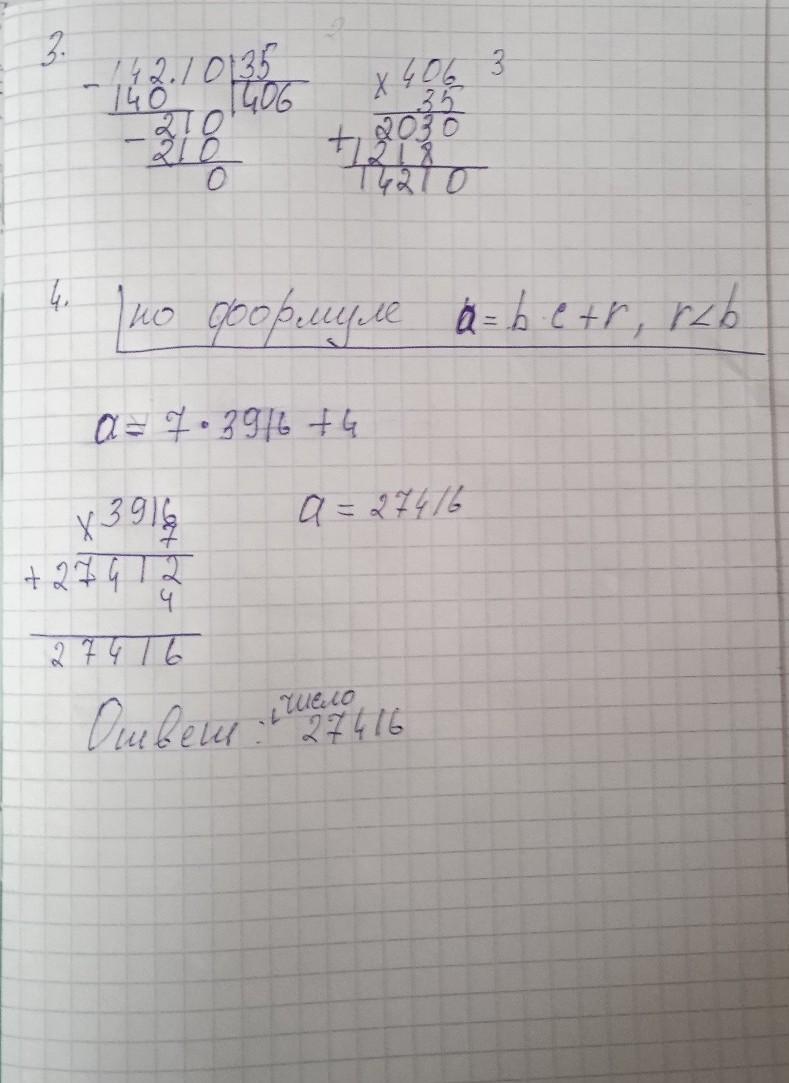 3.
- 142.10 | 35
140 | 406
- 210
210
0
× 406 3
35
2030
+ 1218
14210
4. по формуле a = b · c + r, r < b
a = 7 · 3916 + 4
× 3916
7
+ 27412
4
27416
a = 27416
Ответ: число
27416